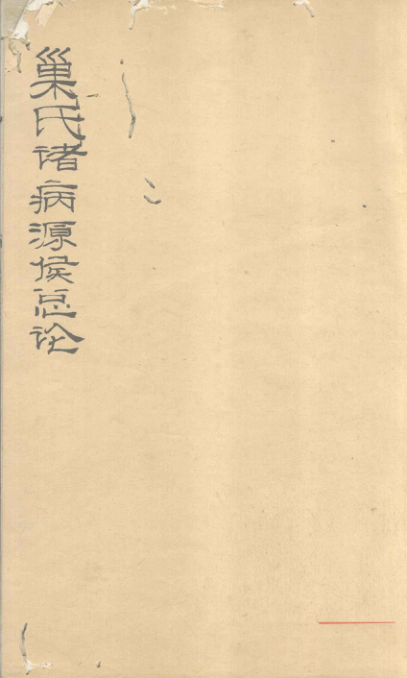 巢氏诸病源侯总论